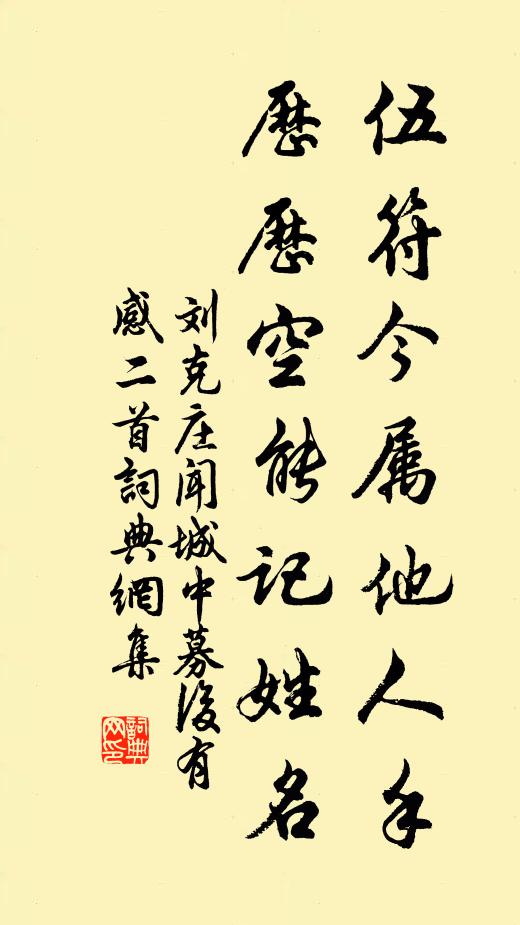 伍符今属他人手
历历空能记姓名
刘克庄闻城中募役有
感二首词典網集
詞典網印